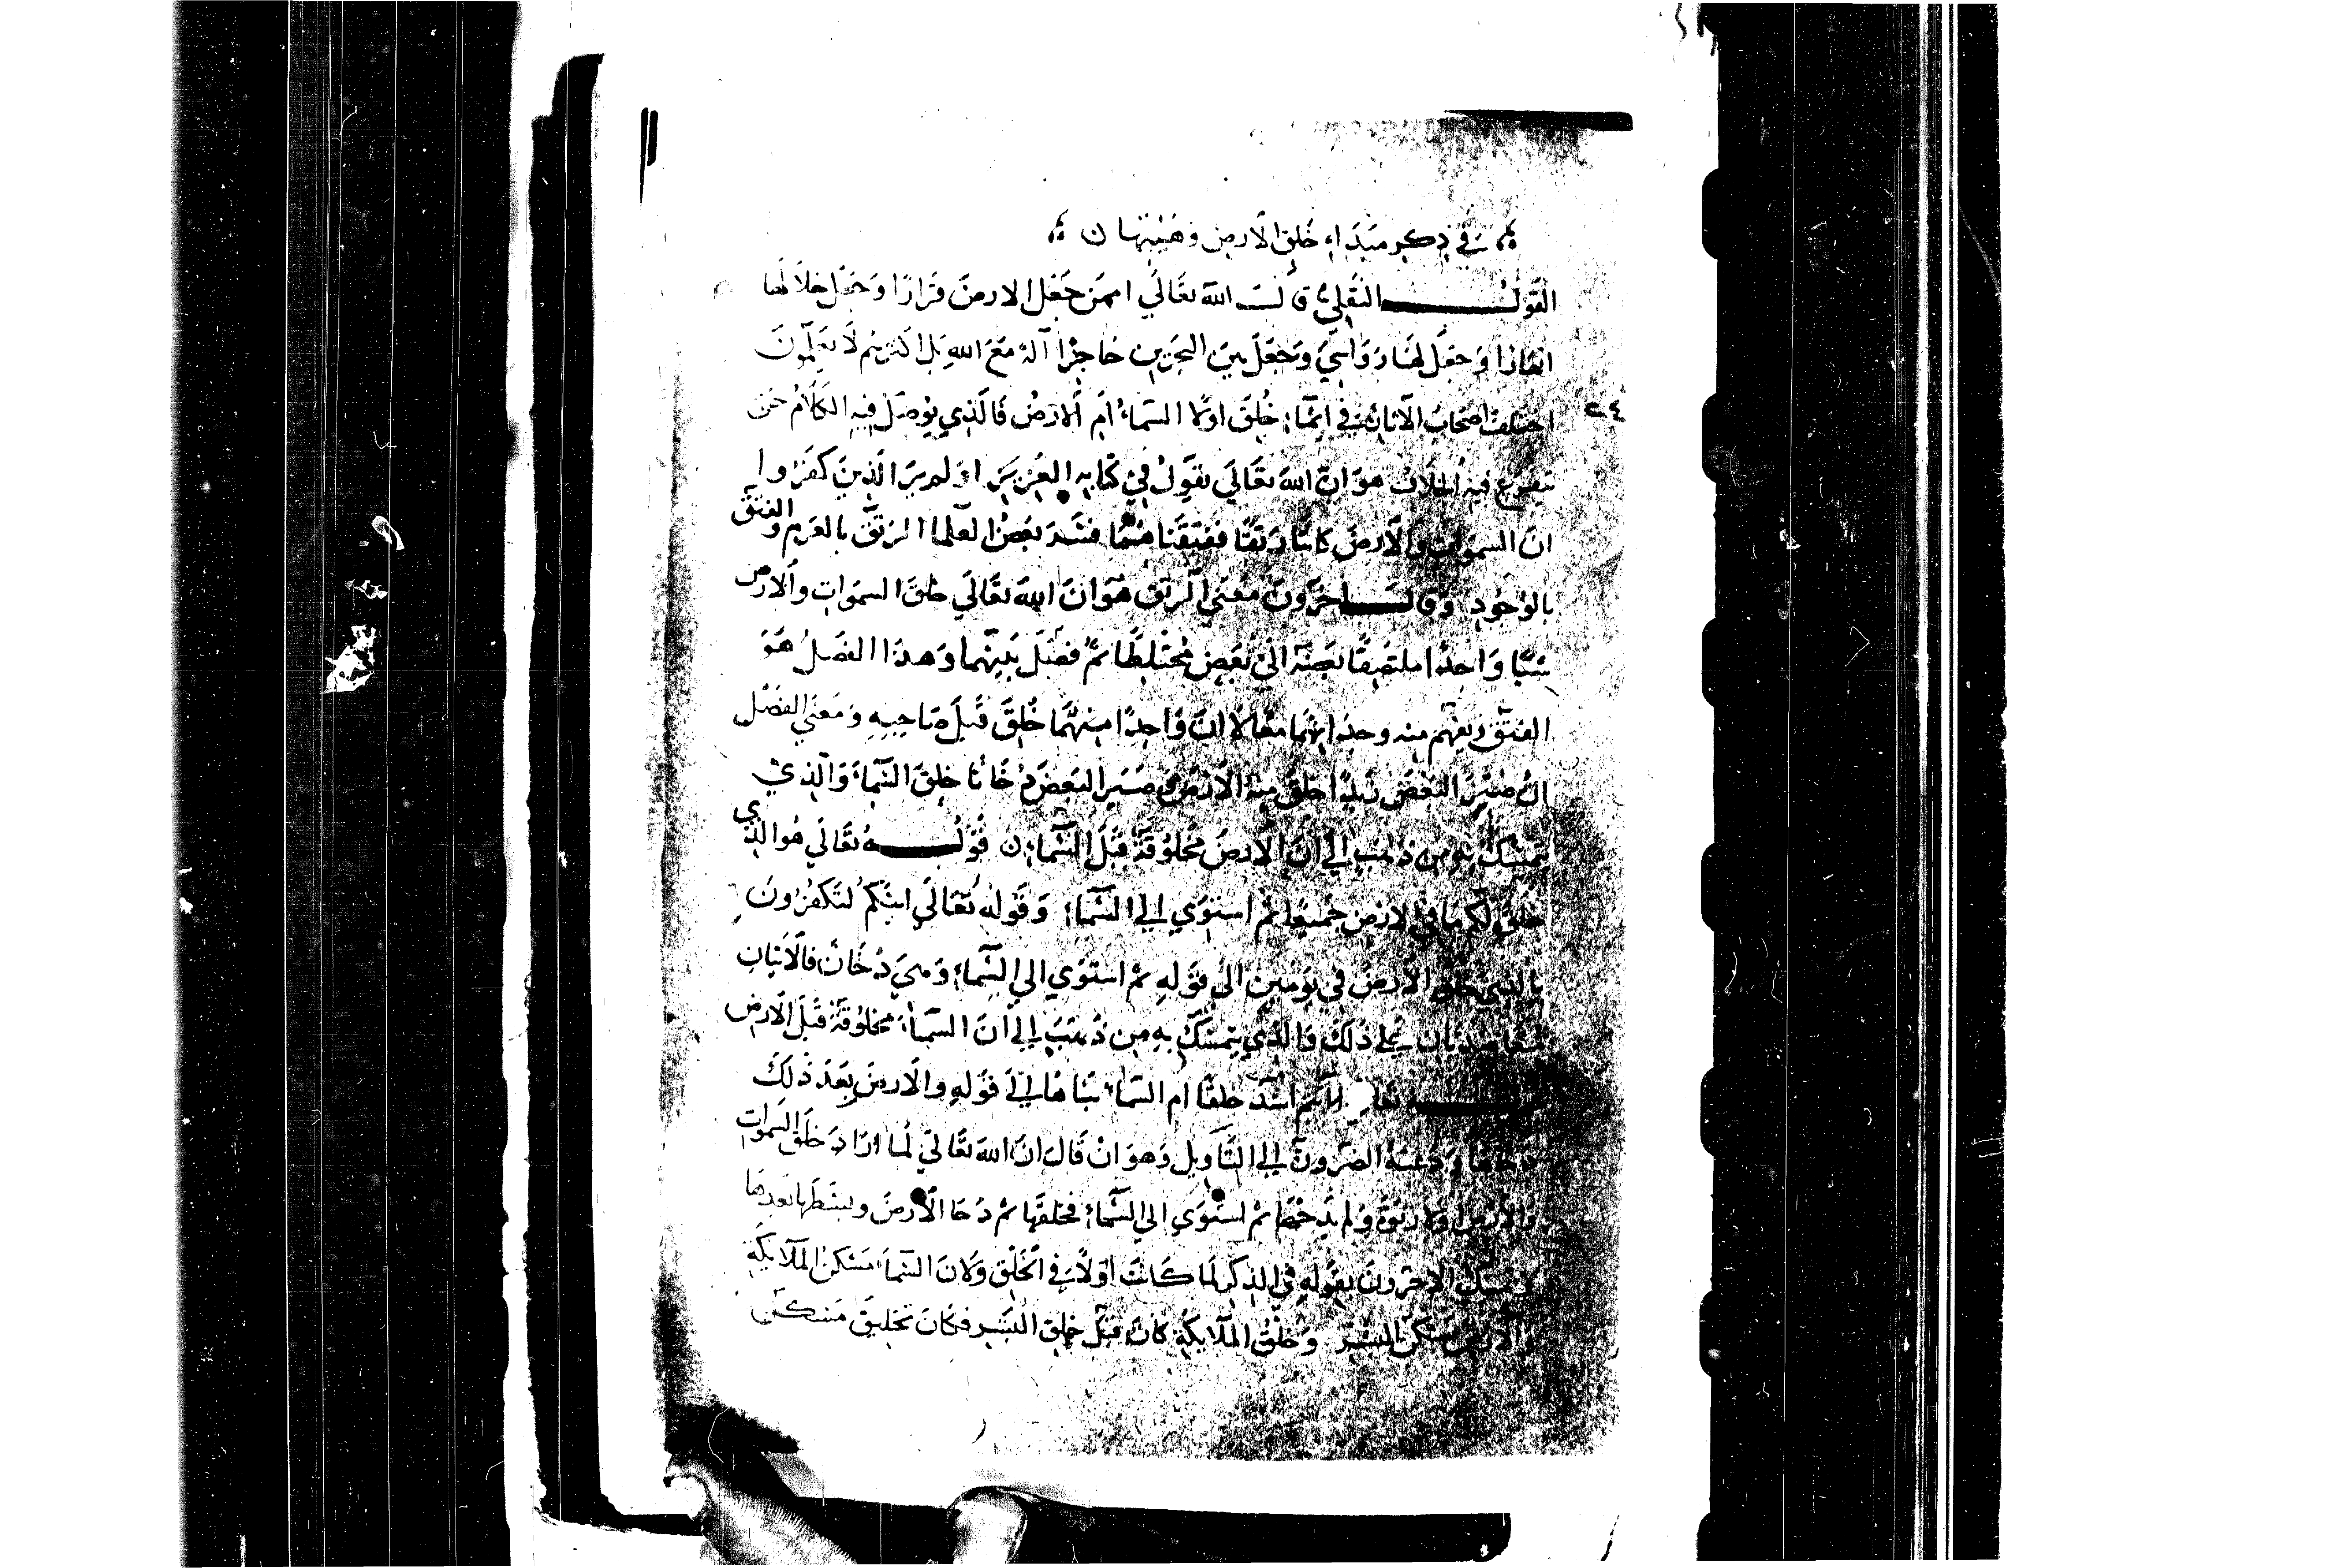 في ذكر مبداء خلق الارض وهيئتها ن
القول النقلي قال الله تعالي امن جعل الارض قرارا وجعل خلالها
انهارا وجعل لها رواسي وجعل بين البحرين حاجزا آله مع الله بل اكثرهم لا يعلمون
٢٤
اختلف اصحاب الاثار في ايما خلق اولا السماء ام الارض فالذي يوصل فيه الكلام حتى
فيه الخلاف هو ان الله تعالي يقول في كتابه العزيز اولم ير الذين كفروا
ان السموات والارض كانتا رتقا ففتقناهما ففسر بعض العلما الرتق بالعدم والفتق
بالوجود وقال اخرون معني الرتق هو ان الله تعالي خلق السموات والارض
شيا واحدا ملتصقا بعضه الي بعض مختلطا ثم فصل بينهما وهذا الفصل هو
الفتق ويفهم منه وحده انهما معا لا ان واحدا منهما خلق قبل صاحبه ومعني الفصل
ان صير البعض زبدا خلق منه الارض وصير البعض دخانا خلق السماء والذي
يتمسك به من ذهب الي ان الارض مخلوقة قبل السماء ن قوله تعالي هو الذي
خلق لكم ما في الارض جميعا ثم استوي الي السماء وقوله تعالي ائنكم لتكفرون
بالذي خلق الارض في يومين الي قوله ثم استوي الي السماء وهي دخان فالايتان
علي ذلك والذي يتمسك به من ذهب الي ان السماء مخلوقة قبل الارض
قوله تعالي اانتم اشد خلقا ام السماء بناها الي قوله والارض بعد ذلك
دحاها الي التاويل وهو ان قال ان الله تعالي لما اراد خلق السموات
والارض ولم يدحها ثم استوي الي السماء فخلقها ثم دحا الارض وبسطها بعدها
الاخرون بقوله في الذكر لما كانت اولا في الخلق ولان السماء مسكن الملايكة
والارض مسكن البشر وخلق الملايكة كان قبل خلق البشر فكان تخليق مسكن